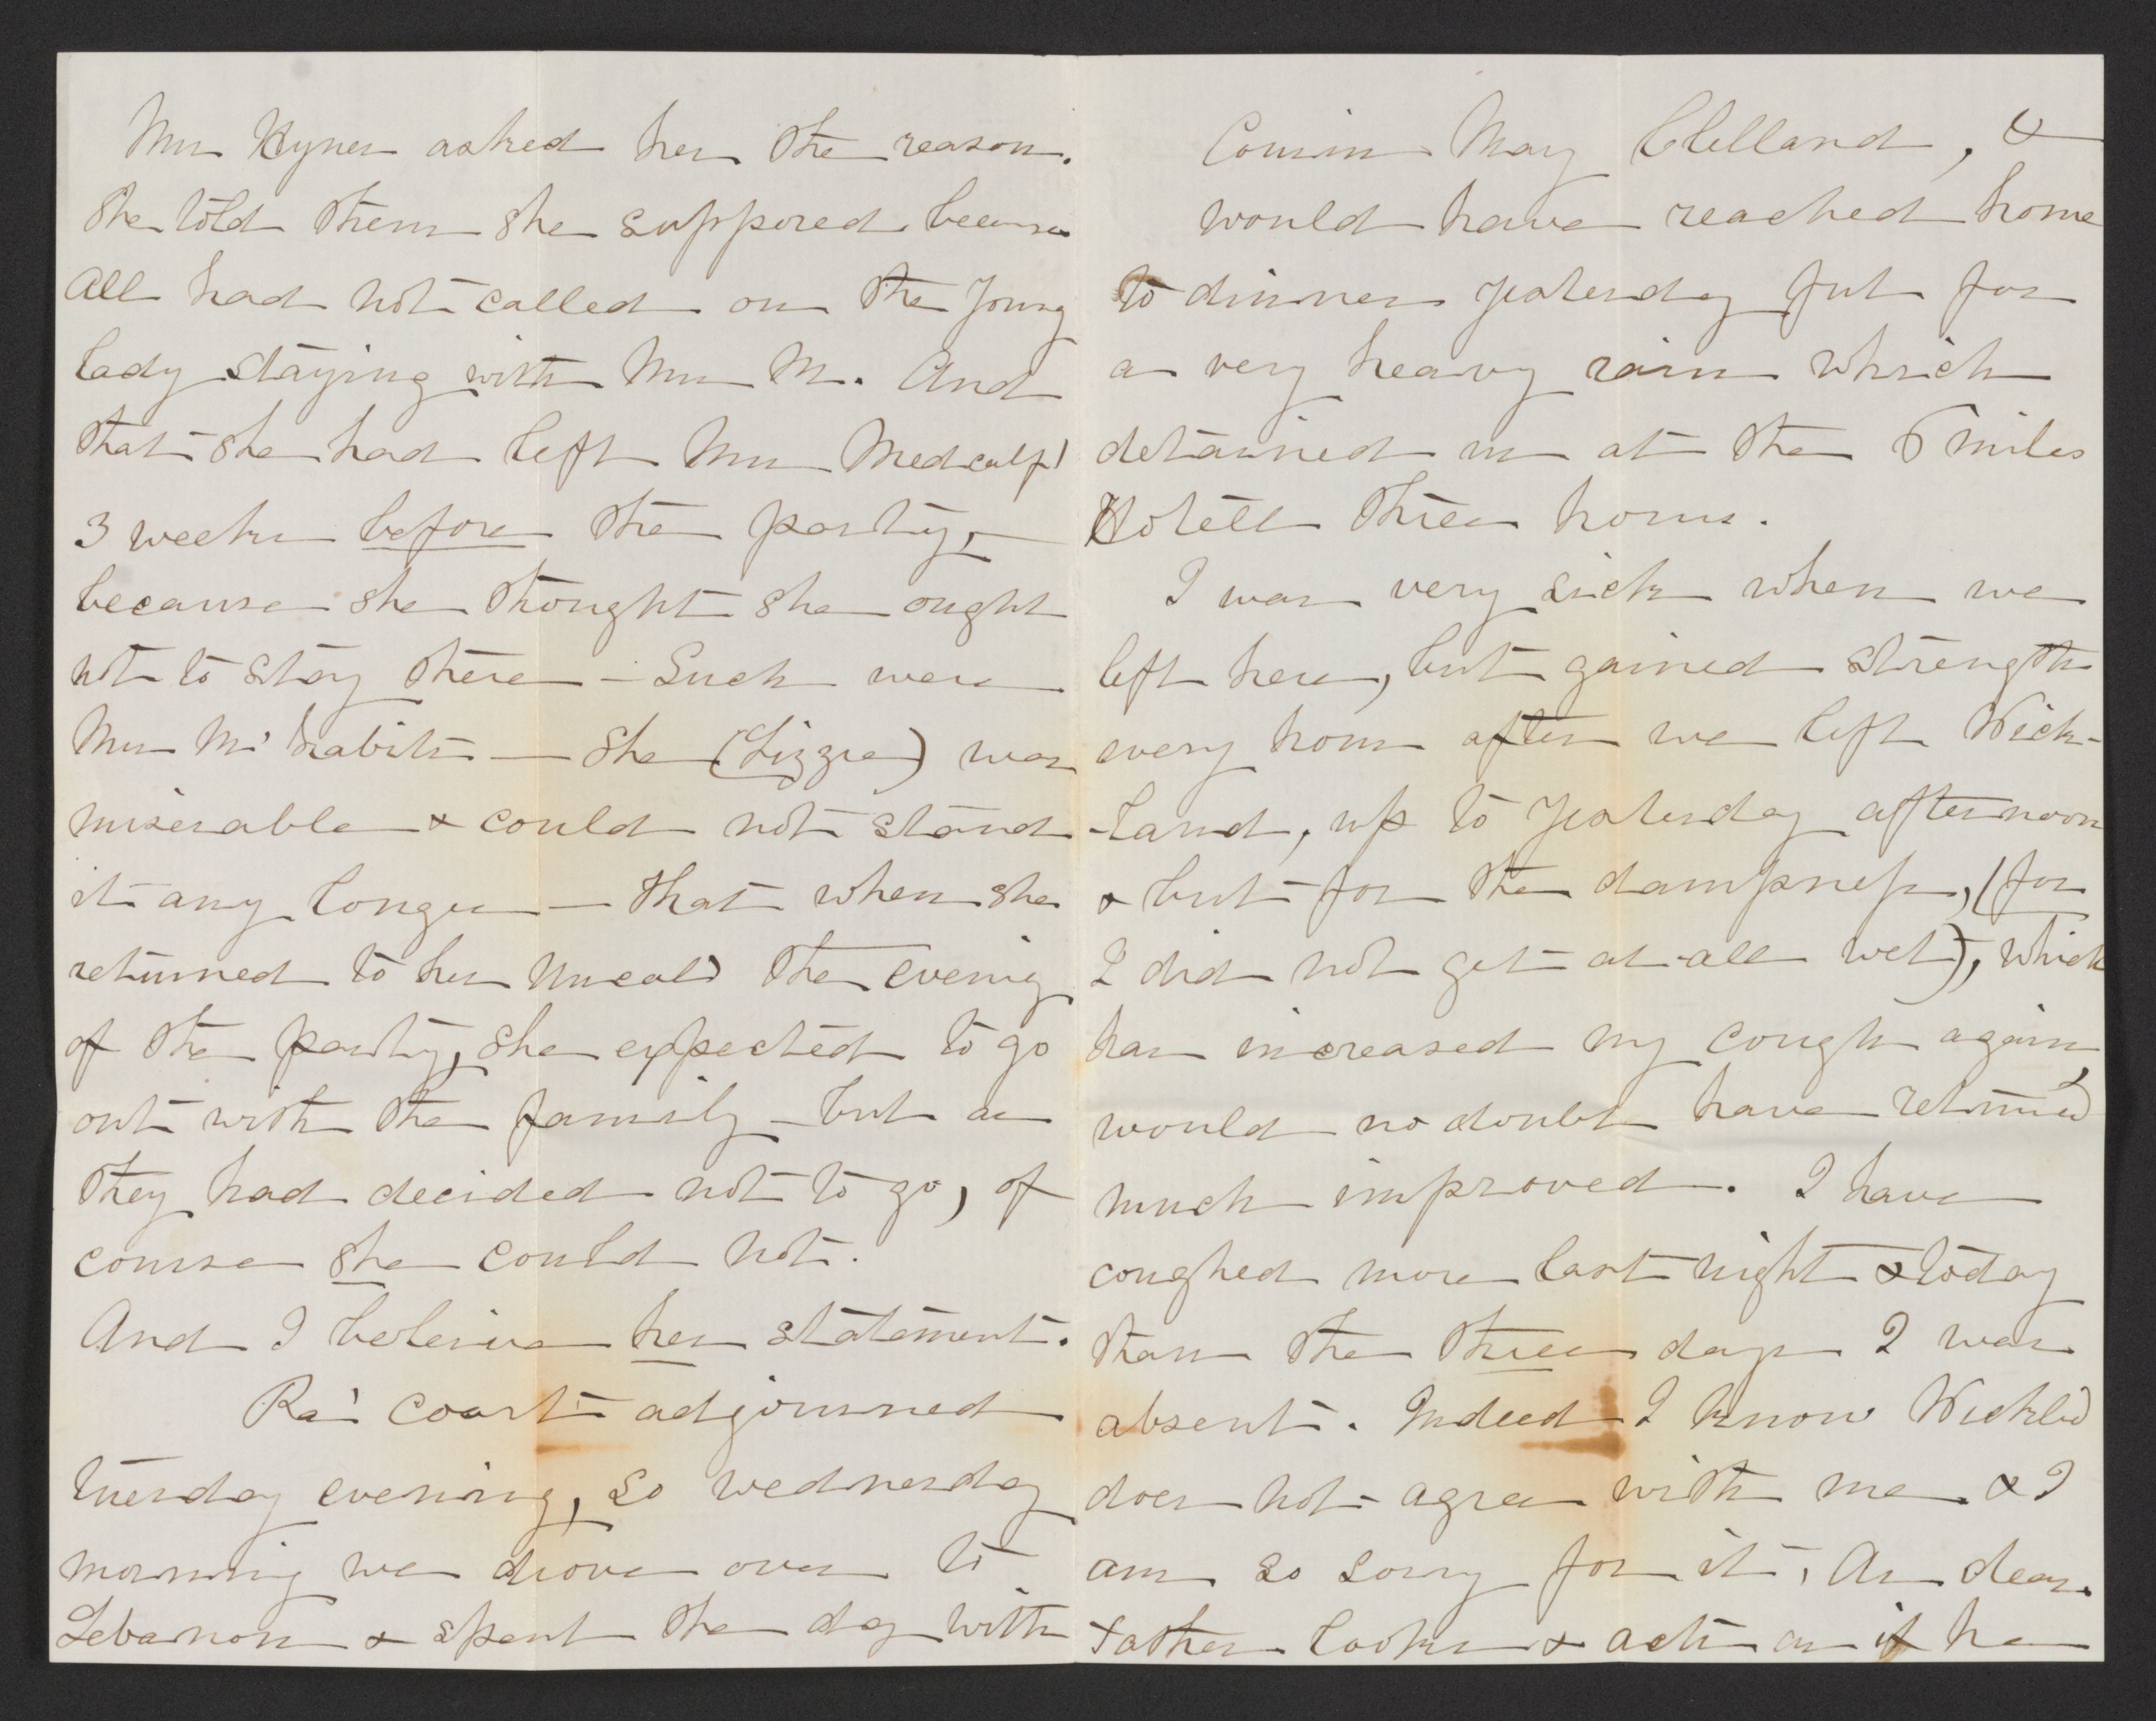 Mrs Hynes asked her the reason.
She told them she supposed because
All had not called on the young
lady staying with Mrs M. And
that she had left Mrs Medcalf's
3 weeks before the party,
because she thought she ought
not to stay there - Such were
Mrs M's habits — She (Lizzie) was
miserable & could not stand
it any longer — that when she
returned to her Uncals the evenig
of the party, she expected to go
out with the family - but as
they had decided not to go, of
course she could not.
And I beleive her statement.
Pa's court adjourned
tuesday evening, so wednesday
morning we drove over to
Lebanon & spent the day with
Cousin May Clelland, &
would have reached home
to dinner yesterday but for
a very heavy rain which
detained us at the 6 miles
Hotell three hours.
I was very sick when we
left here, but gained strength
every hour after we left Wick-
-land, up to yesterday afternoon
& but for the dampness, (for
I did not get at all wet), which
has increased my cough again,
would no doubt have returned
much improved. I have
coughed more last night & today
than the three days I was
absent. Indeed I know Wickld
does not agree with me & I
am so sorry for it, As dear
Father looks & acts as if he